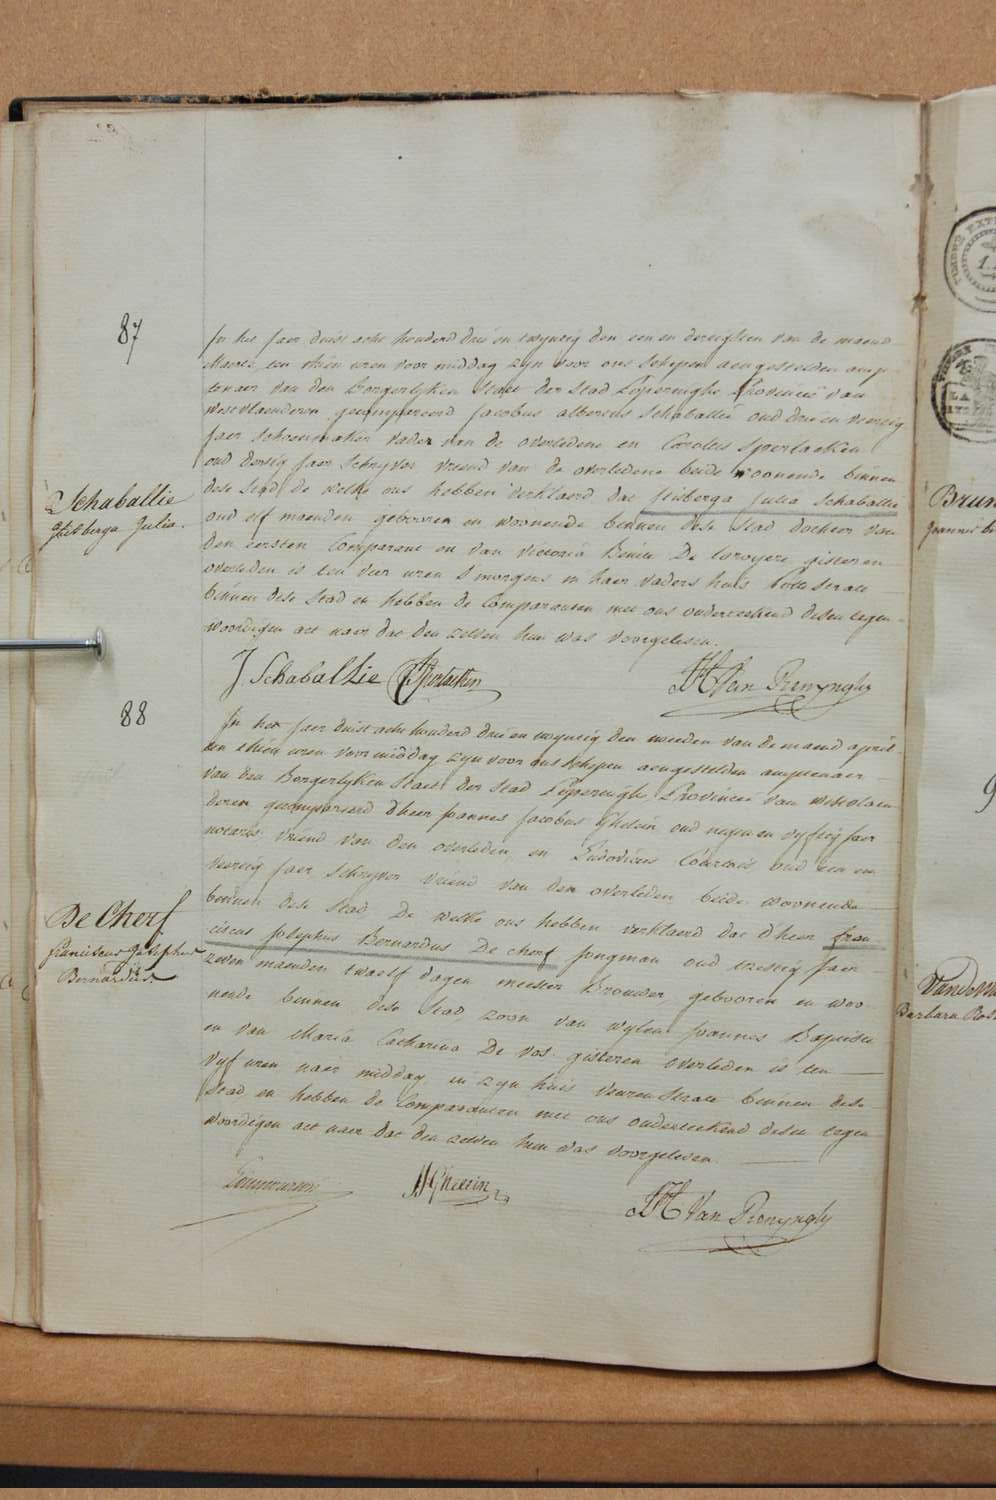 87
In het Jaer duist acht honderd drie en twyntig den een en dertigsten van de maend
Maerte ten thien uren voor middag zyn voor ons schepen aengestelden amp-
tenaer van den Borgerlyken Staet der Stad Poperinghe Provincie van
Westvlaenderen gecompareerd Jacobus albertus Schaballie oud drie en veertig
Jaer Schoenmaker vader van de overledene en Carolus Sperlaeken
oud dertig Jaer Schryver vriend van de overledene beide woonende binnen
dese Stad, de welke ons hebben verklaerd dat Itisberga Julia Schaballie
oud elf maenden gebooren en woonende binnen dese Stad dochter van
den eersten Comparant en van Victoria De gisteren
overleden is ten vier uren S'morgens in haer vaders huis Strate
binnen dese Stad en hebben de Comparanten met ons onderteekend desen tegen-
woordigen act naer dat den zelven hun was voorgelesen.
Schaballie
Itisberga Julia.
J. Schaballie C Sperlaeken Van Renynghe
88
In het Jaer duist acht honderd drie en twyntig den tweeden van de maend april
ten thien uren voor middag zyn voor ons schepen aengestelden amptenaer
van den Borgerlyken Staet der Stad Poperinghe Provincie van Westvlaen-
deren gecompareerd d'heer Joannes Jacobus Ghelein oud negen en vyftig Jaer
notaris, vriend van den overleden, en Ludovicus oud een en
veertig Jaer Schryver vriend van den overleden beide woonende
binnen dese Stad De welke ons hebben verklaerd dat d'heer fran-
ciscus Josephus Bernardus De cherf Jongman oud tzestig Jaer
zeven maenden twaelf dagen meester Brouwer, gebooren en woo-
nende binnen dese Stad, zoon van wylen Joannes Baptiste
en van Maria Catharina De vos gisteren overleden is ten
vyf uren naer middag in zyn huis veurenstrate binnen dese
Stad en hebben de Comparanten met ons onderteekend desen tegen-
woordigen act naer dat den zelven hun was voorgelesen.
De Cherf
franciscus Josephus
Bernardus.
JJ Ghelein Van Renynghe
Brun
Joannes
Barbara Ros